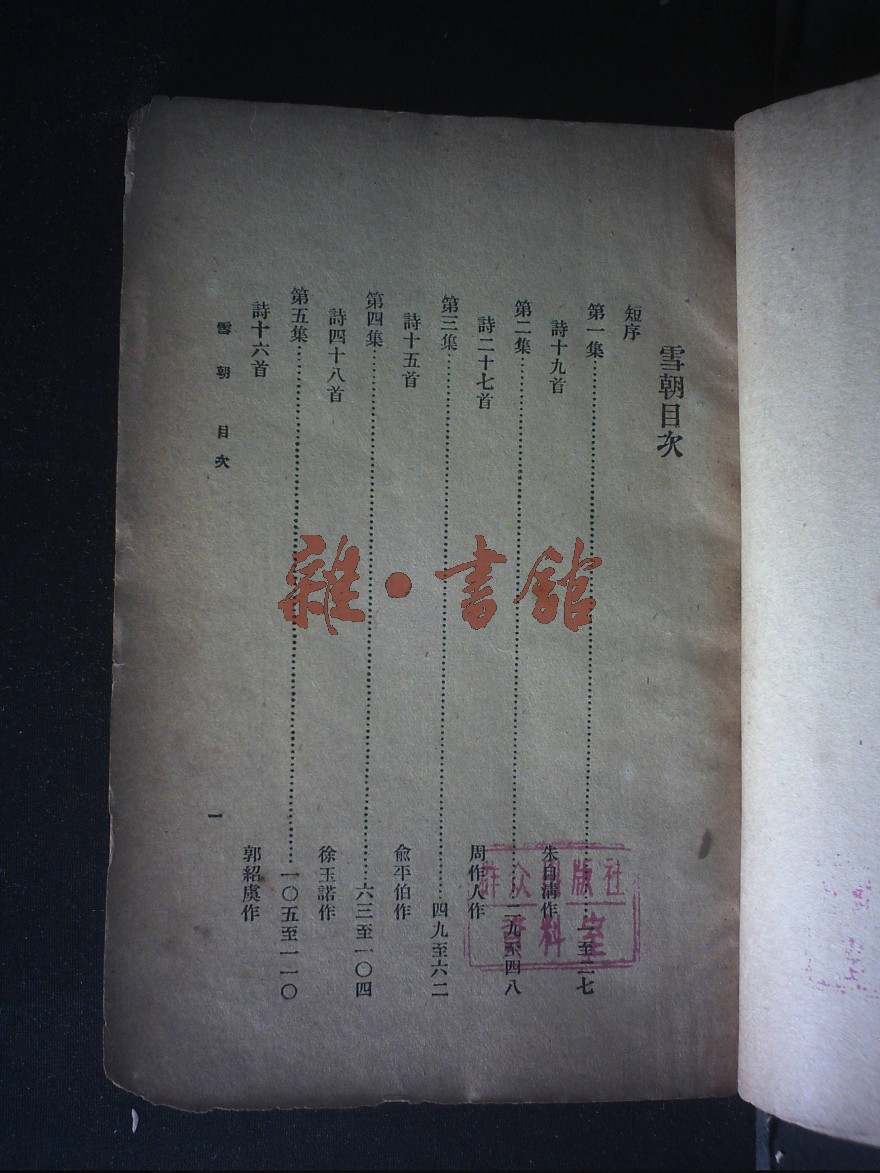 雪朝目次
短序
第一集……一至二七
詩十九首 朱自淸作
第二集……二九至四八
詩二十七首 周作人作
第三集……四九至六二
詩十五首 兪平伯作
第四集……六三至一〇四
詩四十八首 徐玉諾作
第五集……一〇五至一二〇
詩十六首 郭紹虞作
雪朝 目次
一
雜·書館
群众出版社
資料室